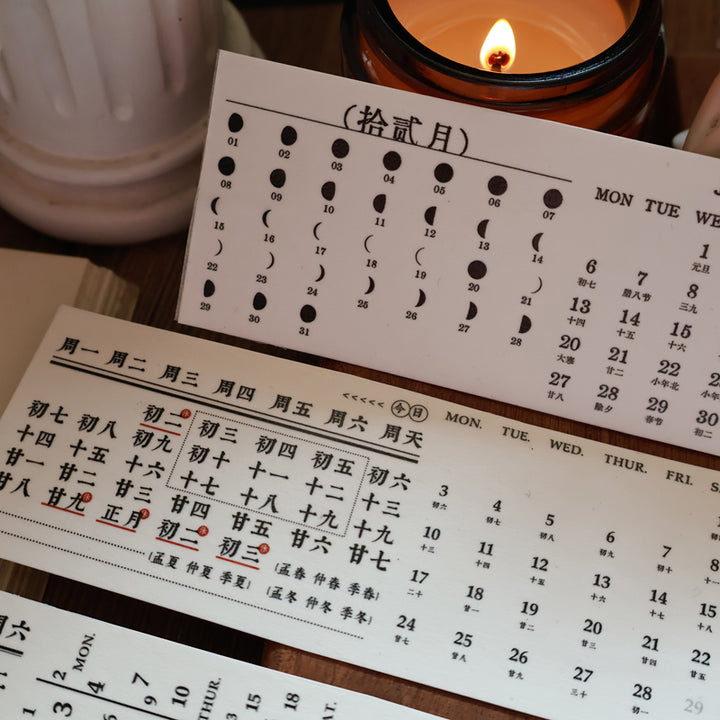 (拾贰月)
01 02 03 04 05 06 07
08 09 10 11 12 13 14
15 16 17 18 19 20 21
22 23 24 25 26 27 28
29 30 31
MON TUE WE
1
元旦
6 7 8
初七 腊八节 三九
13 14 15
十四 十五 十六
20 21 22
大寒 廿二 小年北
27 28 29 30
廿八 除夕 春节 初二
周一 周二 周三 周四 周五 周六 周天
<<<<< 今日
初二休 初三 初四 初五 初六
初七 初八 初九 初十 十一 十二 十三
十四 十五 十六 十七 十八 十九 十九
廿一 廿二 廿三 廿四 廿五 廿六 廿七
廿八 廿九休 正月休 初二休 初三休
(孟夏 仲夏 季夏) (孟春 仲春 季春)
(孟冬 仲冬 季冬)
MON. TUE. WED. THUR. FRI.
3 4 5 6 7 8
初六 初七 初八 初九 初十
10 11 12 13 14 15
十三 十四 十五 十六 十七 十八
17 18 19 20 21 22
二十 廿一 廿二 廿三 廿四 廿五
24 25 26 27 28 29
廿七 廿八 廿九 三十 初一
周六
MON. THUR.
2 4 7 9 10 15 18
3